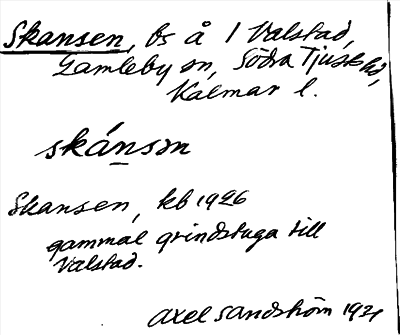 Skansen, bs å 1 Valstad,
Gamleby sn, Södra Tjust hd,
Kalmar l.
skánsən
Skansen, kb 1926
gammal grindstuga till
Valstad.
Axel Sandström 1921